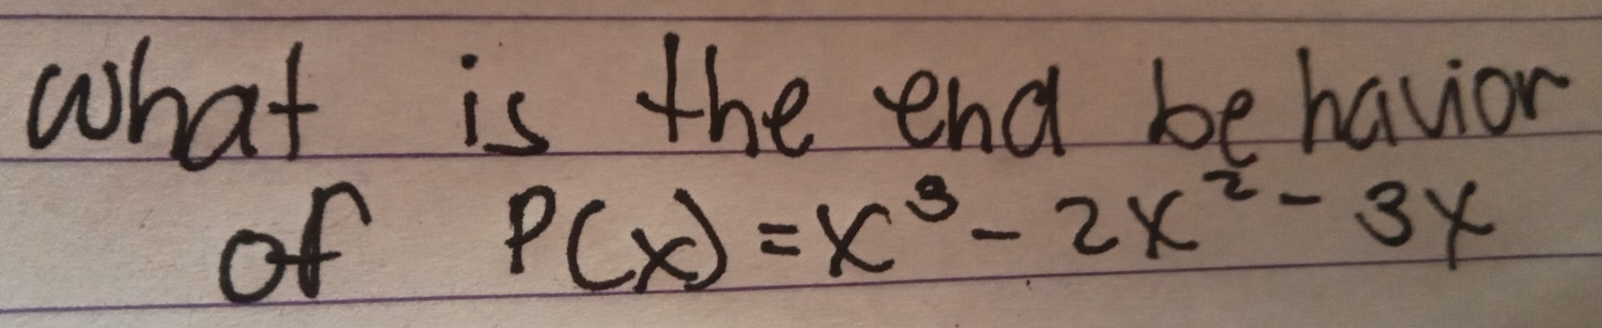 What is the end behavior
of P(x) = x³ - 2x² - 3x